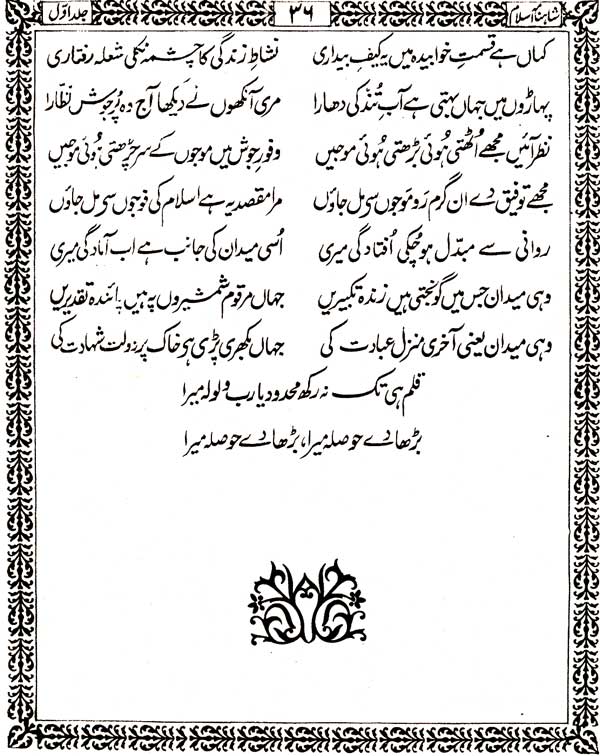 شاہنامۂ اسلام ۳۶ جلد اوّل
کہاں ہے قسمتِ خوابیدہ میں یہ کیفِ بیداری نشاطِ زندگی کا چشمہ نکلی شعلہ رفتاری
پہاڑوں میں جہاں بہتی ہے آبِ تُند کی دھارا مری آنکھوں نے دیکھا آج وہ پُرجوش نظّارا
نظر آئیں مجھے اُٹھتی ہُوئی بڑھتی ہُوئی موجیں وفورِ جوش میں موجوں کے سر چڑھتی ہُوئی موجیں
مجھے توفیق دے ان گرم رَو موجوں سی مل جاؤں مرا مقصد یہ ہے اسلام کی فوجوں سی مل جاؤں
روانی سے مبدّل ہو چُکی اُفتادگی میری اُسی میدان کی جانب ہے اب آمادگی میری
وہی میدان جس میں گونجتی ہیں زندہ تکبیریں جہاں مرقوم شمشیروں پہ ہیں پائندہ تقدیریں
وہی میدان یعنی آخری منزل عبادت کی جہاں بکھری پڑی ہی خاک پر دولت شہادت کی
قلم ہی تک نہ رکھ محدود یارب ولولہ میرا
بڑھا دے حوصلہ میرا، بڑھا دے حوصلہ میرا